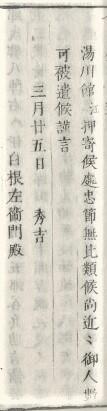 湯川館江押寄候處忠節無比類候尚近〻御人數
可被遣候謹言
三月廿五日　秀吉
白根左衞門殿